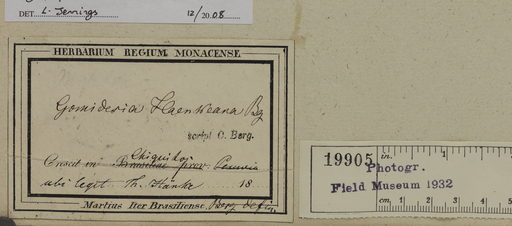 DET. L. Jennings 12/2008
HERBARIUM REGIUM MONACENSE.
Gomidesia Haenkeana Bg
script C. Berg.
Chiquitos
Crescit in Brasiliae prov. Peruvia
ubi legit Th. Hänke 18
Martius Iter Brasiliense. Berg defin.
19905
Photogr.
Field Museum 1932
in. 1
cm. 1 2 3